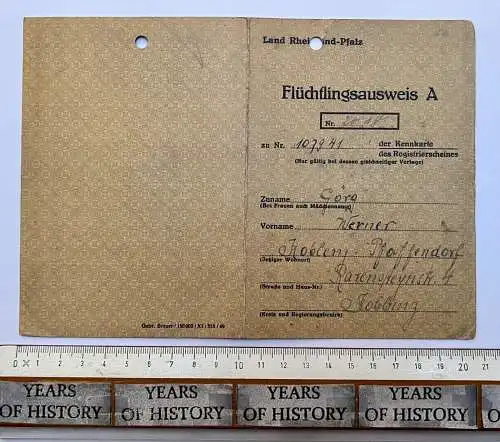 Land Rheinland-Pfalz
Flüchtlingsausweis A
Nr.
zu Nr. 107941 der Kennkarte
des Registrierscheines
(Nur gültig bei dessen gleichzeitiger Vorlage)
Zuname Görg
(Bei Frauen auch Mädchenname)
Vorname Werner
Koblenz-Pfaffendorf
(Jetziger Wohnort)
4
(Straße und Haus-Nr.)
Koblenz
(Kreis und Regierungsbezirk)
0 1 2 3 4 5 6 7 8 9 10 11 12 13 14 15 16 17 18 19 20 21
YEARS OF HISTORY
YEARS OF HISTORY
YEARS OF HISTORY
YEARS OF HISTORY